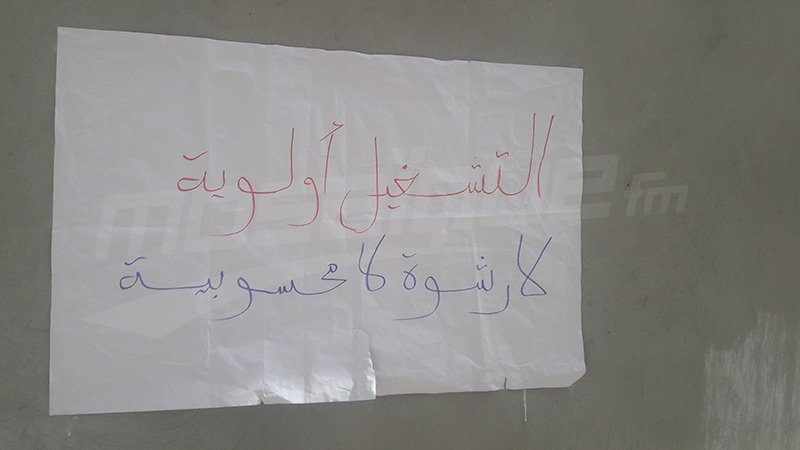 التشغيل أولوية
لا رشوة لا محسوبية
mosaique fm